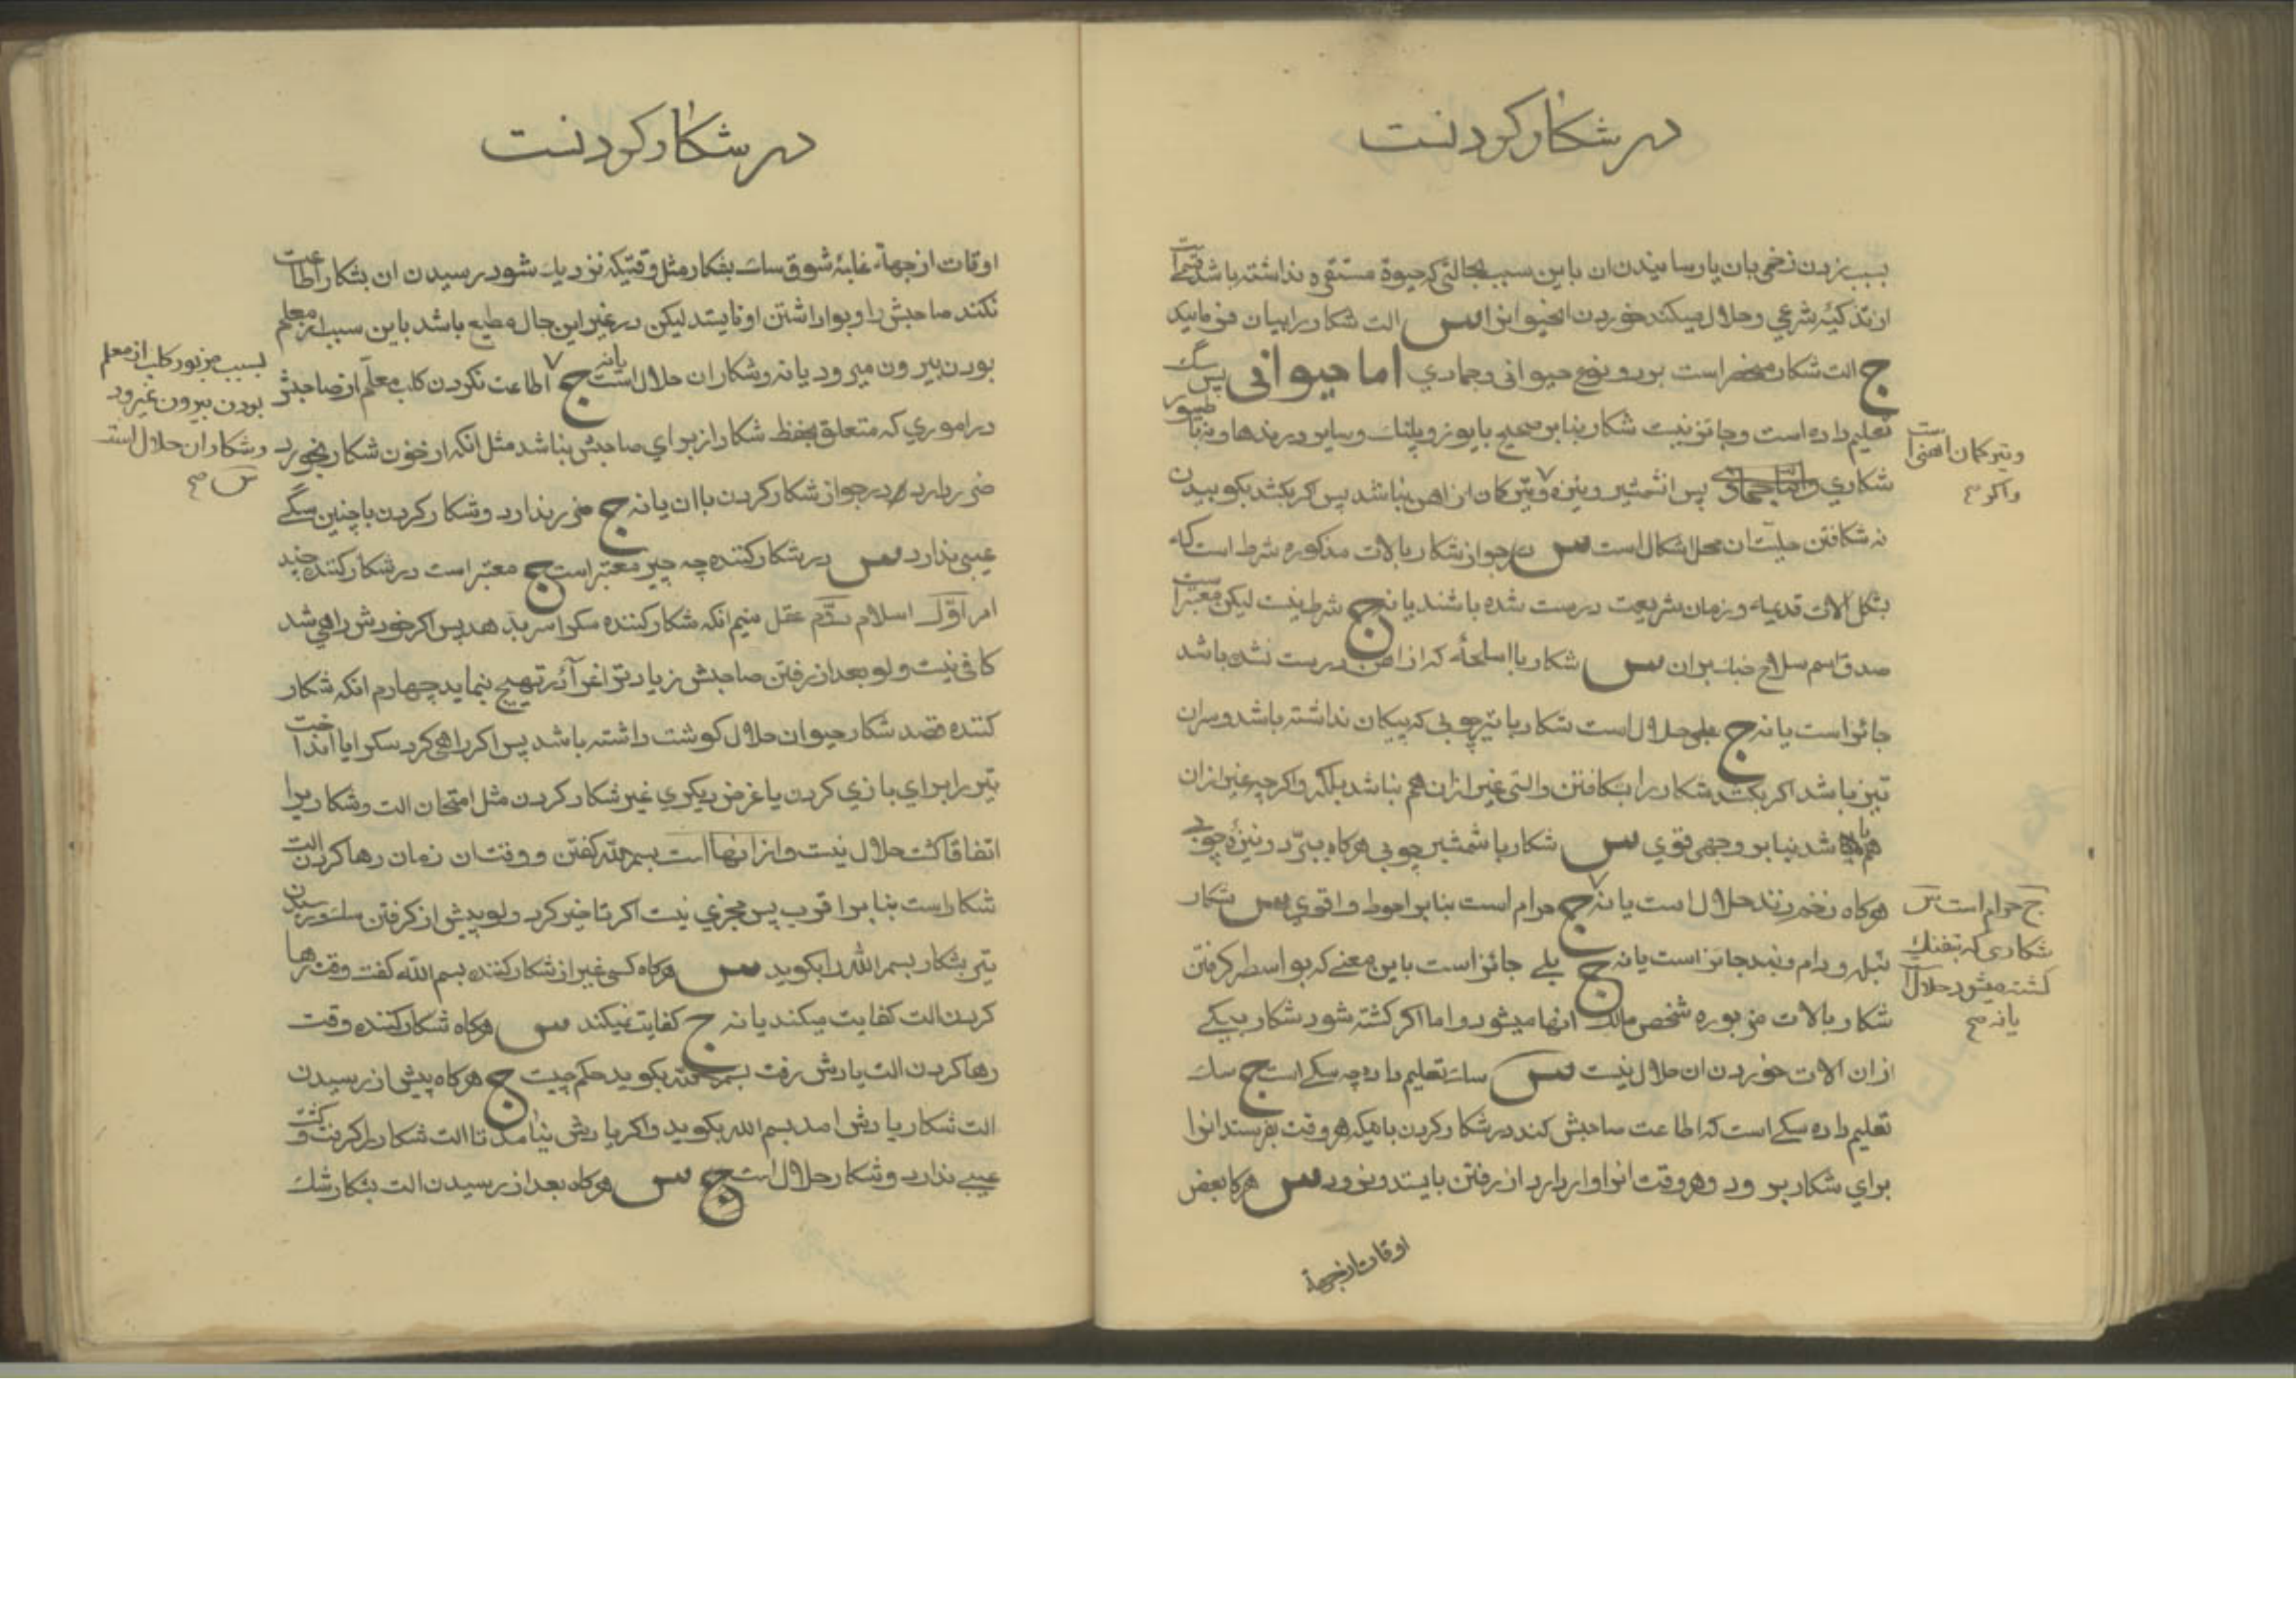 در شکار کردنست
بسبب زدن زخمی بان یا رسانیدن ان باین سبب بحالتی که حیوة مستقره نداشته باشد قسمی است
از تذکیهٔ شرعی و حلال میکند خوردن انحیوانرا س الت شکار را بیان فرمائید
ج الت شکار منحصر است بر دو نوع حیوانی و جمادی اما حیوانی پس سگ
تعلیم داده است و جائز نیست شکار بنابر صحیح با یوز و پلنک و سایر درندها و نه با طیور
شکاری پس از شمشیر و نیزه و تیر کمان از اهن نباشد پس اگر بکشد بکوبیدن
وتیر کمان اهنی است
واکر صح
نه شکافتن حلیّت ان محل اشکال است س در جواز شکار بالات مذکوره شرط است که
بشکل الات قدیمه و زمان شریعت درست شده باشند یا نه ج شرط نیست لیکن معتبر است
صدق اسم سلاح جنک بر ان س شکار با اسلحهٔ که از اهن درست نشده باشد
جائز است یا نه ج بلی حلال است شکار با تیر چوبی که پیکان نداشته باشد و سر ان
تیز باشد اکر بکشد شکار را بشکافتن و التی غیر از ان هم نباشد بلکه و اکرچه غیر از ان
هم باشد بنابر وجهی قوی س شکار با شمشیر چوبی هرکاه ببرّد و نیزهٔ چوبی
هرکاه زخم زند حلال است یا نه ج حرام است بنابر احوط و اقوی س شکار
ج حرام است س
شکاری که بتفنک
کشته میشود حلال است
یا نه صح
بتله و دام و بند جائز است یا نه ج بلی جائز است باین معنی که بواسطه کرفتن
شکار بالات مزبوره شخص مالک انها میشود و اما اکر کشته شود شکار بیکی
از ان الات خوردن ان حلال نیست س سک تعلیم داده چه سکی است ج سک
تعلیم داده سکی است که اطاعت صاحبش کند در شکار کردن باینکه هر وقت بفرستد انرا
برای شکار برود و هر وقت انرا وادارد از رفتن بایستد و نرود س هرکاه بعض
اوقات از جهة
در شکار کردنست
اوقات از جهة غلبهٔ شوق سک بشکار مثل وقتیکه نزدیک شود رسیدن ان بشکار اطاعت
نکند صاحبش را و بواداشتن او نایستد لیکن در غیر این حال مطیع باشد باین سبب از معلم
بودن بیرون میرود یا نه و شکار ان حلال است یا نه ج اطاعت نکردن کلب معلّم از صاحبش
بسبب مزبور کلب از معلم
بودن بیرون نمیرود
و شکار ان حلال است
س صح
در اموری که متعلق بحفظ شکار از برای صاحبش نباشد مثل انکه از خون شکار بخورد
ضرر دارد در جواز شکار کردن با ان یا نه ج ضرر ندارد و شکار کردن با چنین سگی
عیبی ندارد س در شکار کننده چه چیز معتبر است ج معتبر است در شکار کننده چند
امر اوّل اسلام دوّم عقل سیم انکه شکار کننده سک را سر بدهد پس اکر خودش راهی شد
کافی نیست و لو بعد از رفتن صاحبش زیادتر اغرا و تهییج نماید چهارم انکه شکار
کننده قصد شکار حیوان حلال کوشت داشته باشد پس اکر راهی کرد سک را یا انداخت
تیر را برای بازی کردن یا غرض دیکری غیر شکار کردن مثل امتحان الت و شکاریرا
اتفاقا کشت حلال نیست و از انها است بسم الله کفتن و وقت ان زمان رها کردن الت
شکار است بنابر اقرب پس مجزی نیست اکر تاخیر کرد و لو پیش از کرفتن سک و رسیدن
تیر بشکار بسم الله را بکوید س هرکاه کسی غیر از شکار کننده بسم الله کفت وقت رها
کردن الت کفایت میکند یا نه ج کفایت نمیکند س هرکاه شکار کننده وقت
رها کردن الت یادش رفت بسم الله بکوید حکم چیست ج هرکاه پیش از رسیدن
الت شکار یادش امد بسم الله بکوید و اکر یادش نیامد تا الت شکار را کرفت و کشت
عیبی ندارد و شکار حلال است ج س هرکاه بعد از رسیدن الت بشکار شک